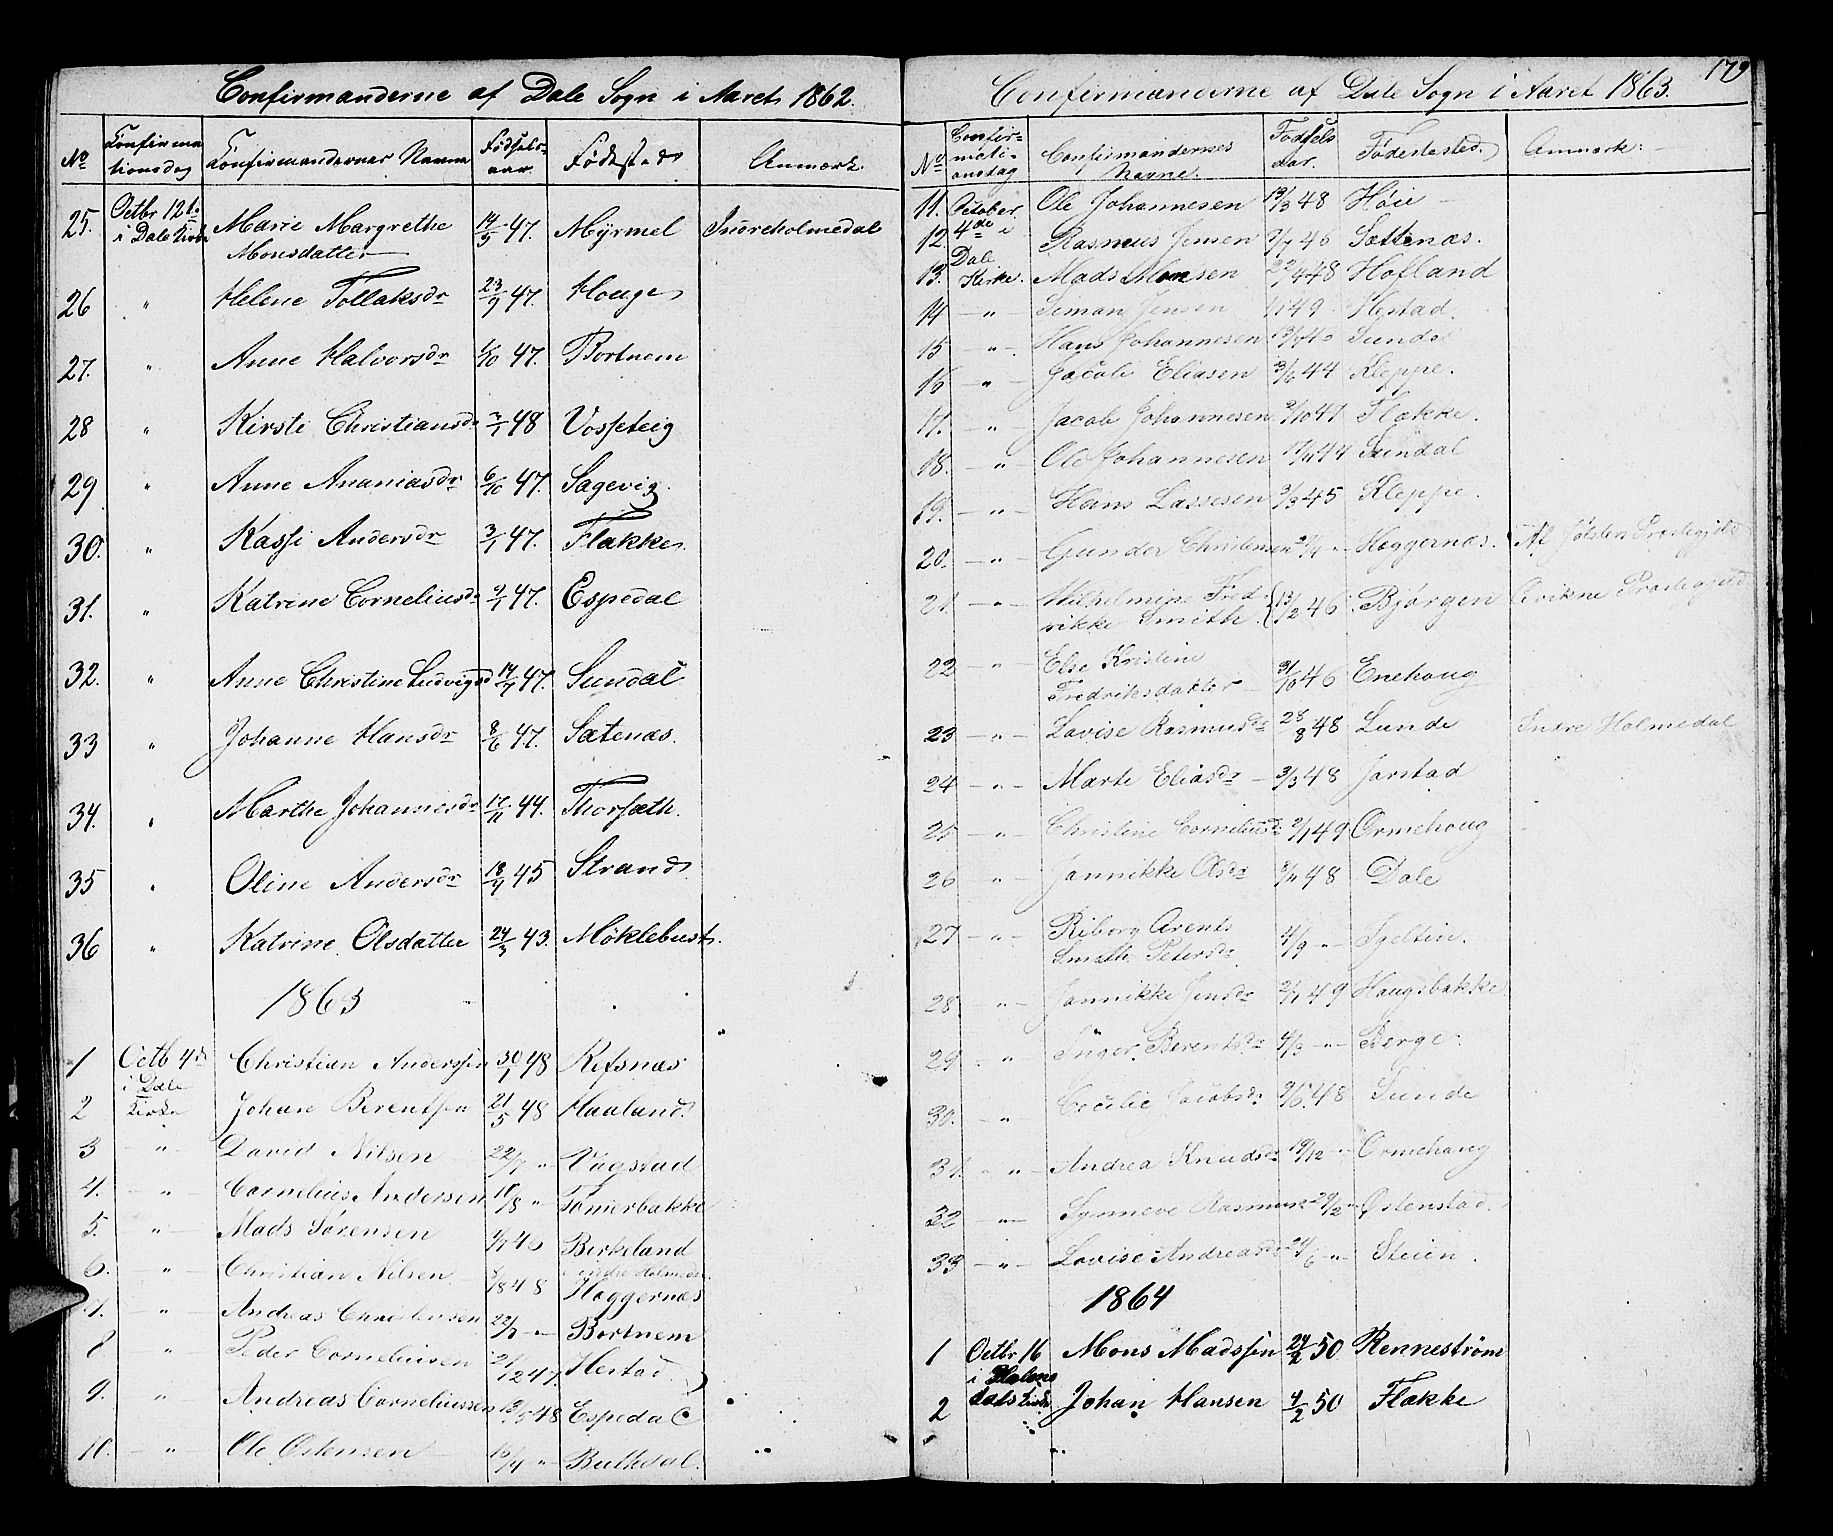 Confirmanderne af Dale Sogn i Aaret 1862.
No Confirmationsdag Confirmandernes Navne Fødselsaar Fødested Anmærk.
25. Octbr 12te i Dale Kirke Marie Margrethe Monsdatter 47. Myrmel Indreholmedal
26 " Helene Tollaksdr 23/9 47. Houge
27. " Anne Halvorsdr 47. Bortnem
28 " Kirsti Christiansdr 48 Vosseteig
29 " Anne Ananiasdr 6/10 47. Sagevig
30. " Kassi Andersdr 3/1 47. Flække
31. " Katrine Corneliusdr 47. Espedal
32. " Anne Christine Ludvigsd 47. Sundal
33 " Johanne Hansdr 8/6 47. Sætenæs.
34. " Marthe Johannesdr 17/11 44. Thorsæth.
35 " Oline Andersdr 45 Strand
36 " Katrine Olsdatter 24/3 43. Møklebust.
1863
1 Octb 4de i Dale Kirke Christian Anderssen 30/1 48 Refsnæs
2 Johan Berentsen 21/5 48 Haaland
3 " David Nilsen 22/7 " Vagstad
4. " Cornelius Andersen 18/8 " Tømerbakke
5. " Mads Sørensen 46 Birkeland
Indre Holmedal
6. " Christian Nilsen 48 Hæggernæs
7. " Andreas Christensen " Bortnem
8 " Peder Corneliusen 47. Hestad
9. " Andreas Corneliussen 48 Espedal
10. " Ole Østensen " Bulkedal.
179
Confirmanderne af Dale Sogn i Aaret 1863.
No Confirmationsdag Confirmandernes Navne. Fødselsaar. Fødested. Anmærk:
11. October 4de i Dale Kirke. Ole Johannesen 48 Høie
12. Rasmus Jensen 46 Sættenæs.
13. Mads Monsen 48 Hofland
14 " Simon Jensen 49 Hestad.
15 " Hans Johannesen Sunde
16 " Jacob Eliasen 3/6 44 Kleppe.
17. " Jacob Johannesen Flække.
18. " Ole Johannesen 44 Sundal
19. " Hans Lassesen 3/3 45 Kleppe.
20. " Gunder Christensen " Hæggernæs. Af Jølster Præstegjeld
21. " Wilhelmine Fredrikke Smith. 13/2 46 Bjørgen Qvikne Præstegjeld
22 " Else Kristine Fredriksdatter 46 Enehoug
23 " Lovise Rasmusdr 28/8 48 Lunde Indre Holmedal
24 " Marte Eliasdr 3/3 48 Jarstad
25 " Christine Corneliusdr 2/1 49 Ormehoug
26 " Jannikke Olsdr 48 Dale
27 " Riborg Arents Smith Petersdr 4/9 "
28. " Jannikke Jensdr 2/1 49 Haugsbakke
29 " Inger Berentsdr 4/3 " Berge.
30. " Cecilie Jacobsdr 48 Sunde
31. " Andrea Knudsdr 19/12 " Ormehaug
32 " Synneve Rasmusdr " Østenstad.
33 " Lovise Andreasdr 24/6 " Steien.
1864
1 Octbr 16 i Holmedals Kirke Mons Madssen 24/2 50 Rennestrøm
2 Johan Hansen 4/2 50 Flække